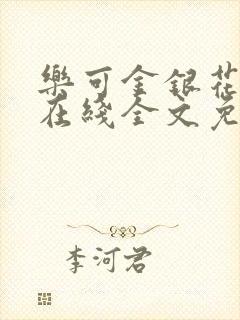 樂可金銀花
在綫全文免
李河君